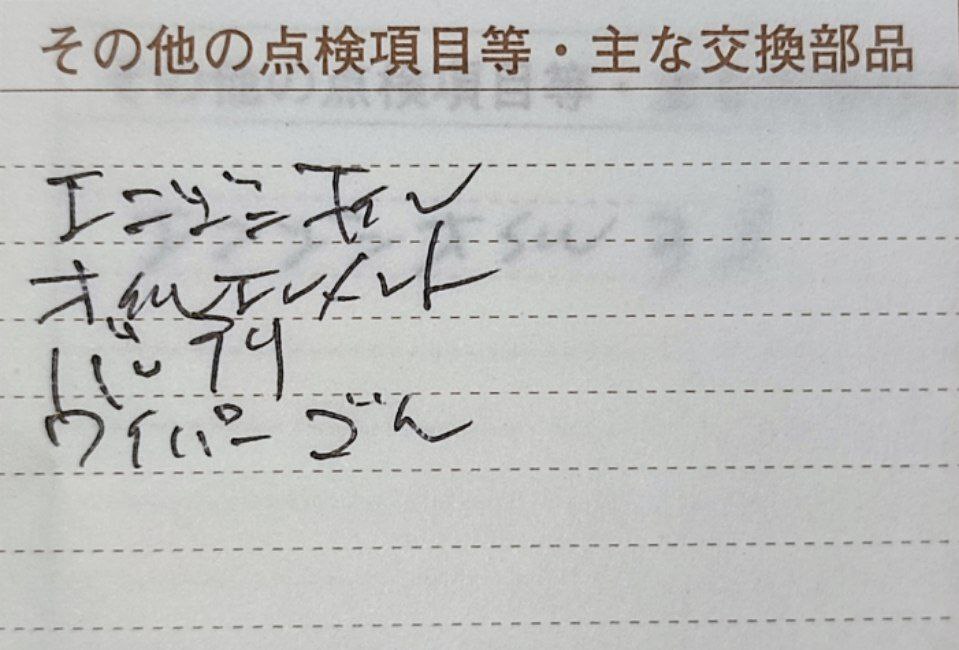 その他の点検項目等・主な交換部品
エンジンオイル
オイルエレメント
バッテリ
ワイパーゴム